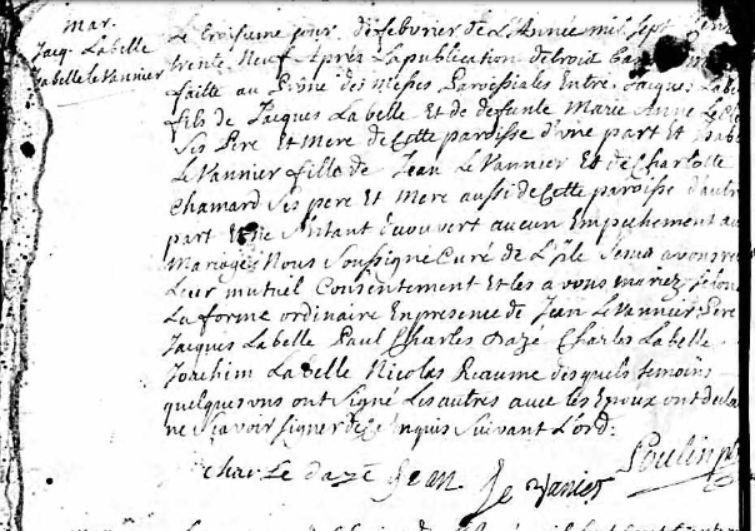 Mar.
Jacq. Labelle
Isabelle le Vannier
Le troisieme jour de febvrier de L'Année mil sept
trente Neuf Après La publication de trois
faitte au Prône des Messes Paroissiales Entre Jacques Labe
fils de Jacques Labelle Et de defunte Marie Anne Le
Ses Pere Et Mere de Cette paroisse d'une part Et
Le Vannier fille de Jean Le Vannier Et de Charlotte
Chamard Ses pere Et Mere aussi de Cette paroisse d'autr
part Et ne S'etant decouvert aucun Empechement au
Mariage Nous Soussigné Curé de L'Ile Jesus avons re
Leur mutuel Consentement Et les avons mariez selon
La forme ordinaire En presence de Jean Le Vannier Pere
Jacques Labelle Paul Charles Dazé Charles Labelle
Joachim Labelle Nicolas Reaume desquels temoins
quelques uns ont Signé Les autres avec les Epoux ont decla
ne Sçavoir signer de ce Enquis Suivant L'ord:
Poulin ptr
charle dazé Jean le vanier